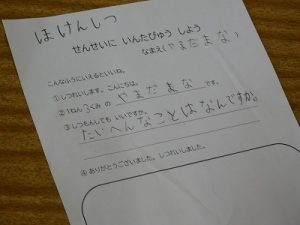 ほけんしつ
せんせいに いんたびゅう しよう
なまえ(やまだまな)
こんなふうにいえるといいね。
①しつれいします。こんにちは。
②1ねん3くみの やまだまな です。
③しつもんしても いいですか。
たいへんなことはなんですか。
④ありがとうございました。しつれいしました。